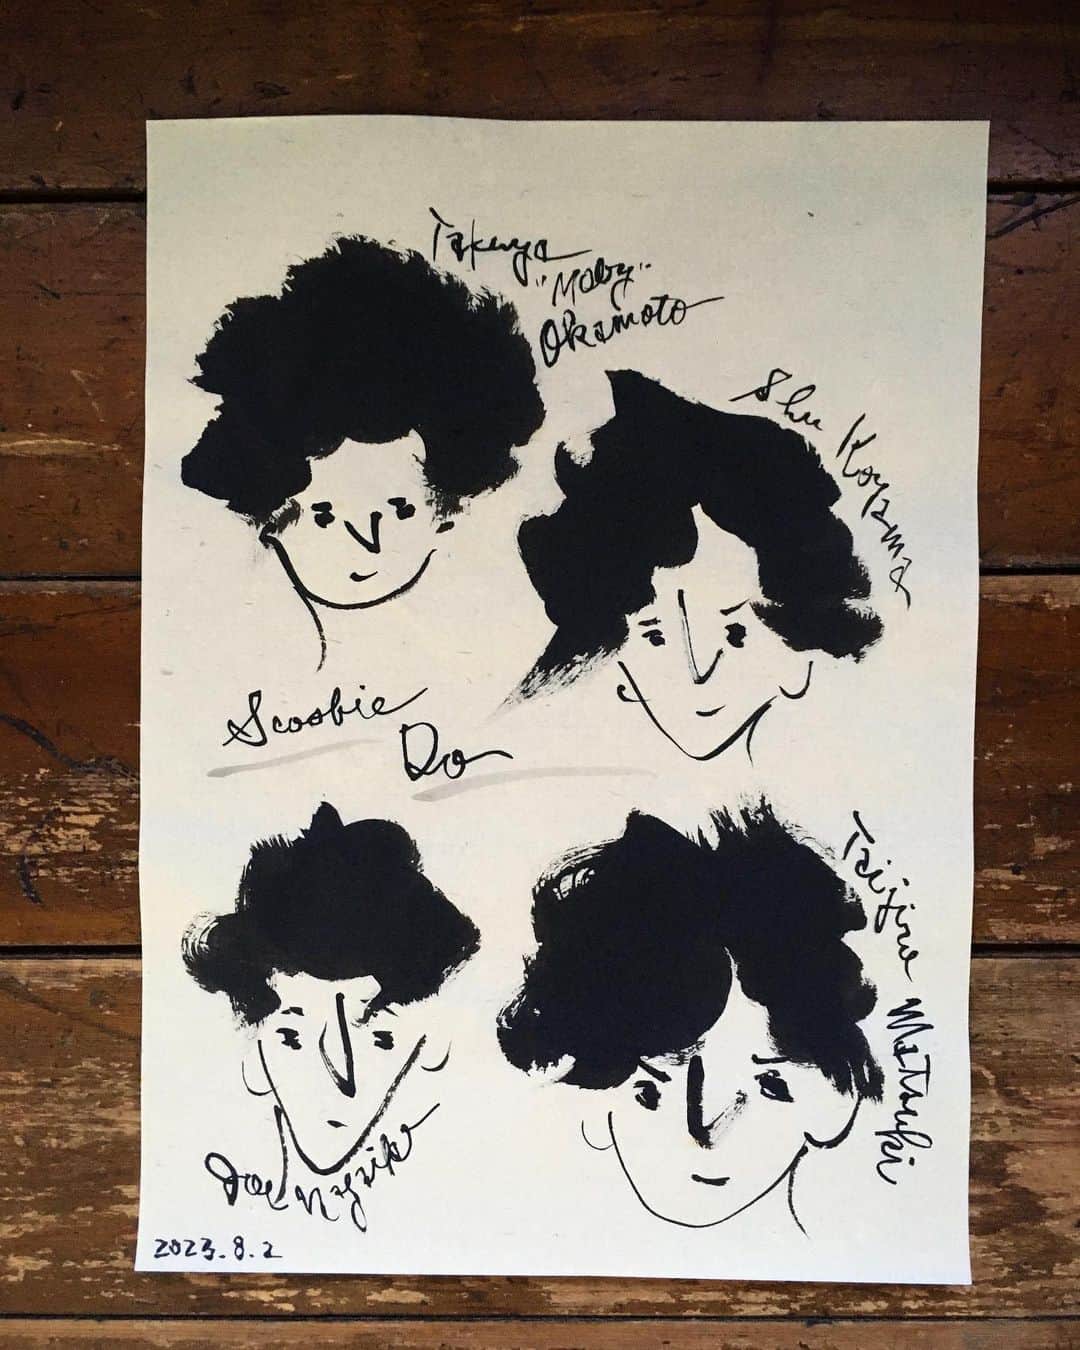 Takuya
"Moby"
Okamoto
Shu Koyama
Scoobie
Do
Taijiro Matsuki
Joe Nagaike
2023.8.2